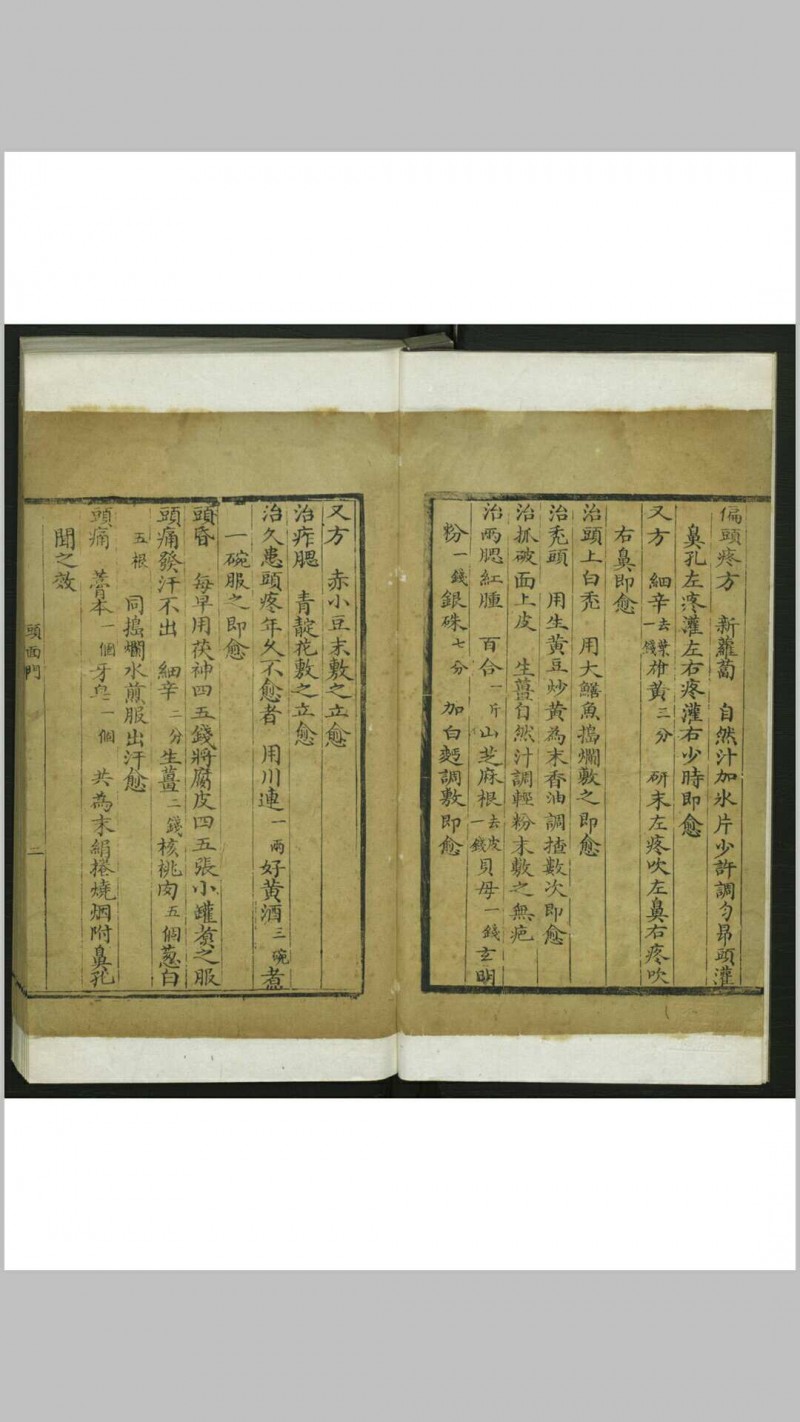 偏頭疼方　新蘿蔔　自然汁加氷片少許調勻昂頭灌
鼻孔左疼灌左右疼灌右少時即愈
又方　細辛去葉一錢雄黃三分　研末左疼吹左鼻右疼吹
右鼻即愈
治頭上白禿　用大鱔魚搗爛敷之即愈
治禿頭　用生黃豆炒黃為末香油調搽數次即愈
治抓破面上皮　生薑自然汁調輕粉末敷之無疤
治兩腮紅腫　百合一斤山芝麻根去皮一錢貝母一錢玄明
粉一錢銀硃七分　加白麪調敷即愈
又方　赤小豆末敷之立愈
治痄腮　青靛花敷之立愈
治久患頭疼年久不愈者　用川連一兩好黃酒三碗煮
一碗服之即愈
頭昏　每早用茯神四五錢將腐皮四五張小罐煮之服
頭痛發汗不出　細辛二分生薑二錢核桃肉五個蔥白
五根　同搗爛水煎服出汗愈
頭痛　藁本一個牙皂一個　共為末絹捲燒烟附鼻孔
聞之效
頭面門　二